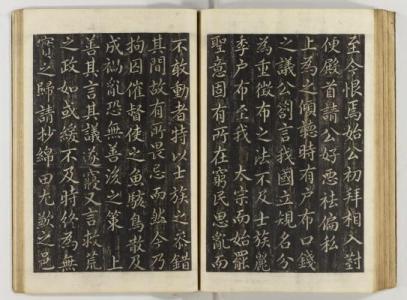 至今恨焉始公初拜相入對
便殿首請公好惡祛偏私
上為之傾聽時有戶布口錢
之議公劄言我國立規名分
為重徵布之法不及士族麗
季戶布至我 太宗而始罷
聖意固有所在窮民思亂而
不敢動者特以士族之參錯
其間故有所畏忌而然今乃
拘囚催督使之魚駭鳥散及
成禍亂恐無善後之策 上
善其言其議遂寢又言救荒
之政如或緩不及時終為無
實之歸請抄綿田尤歉之邑